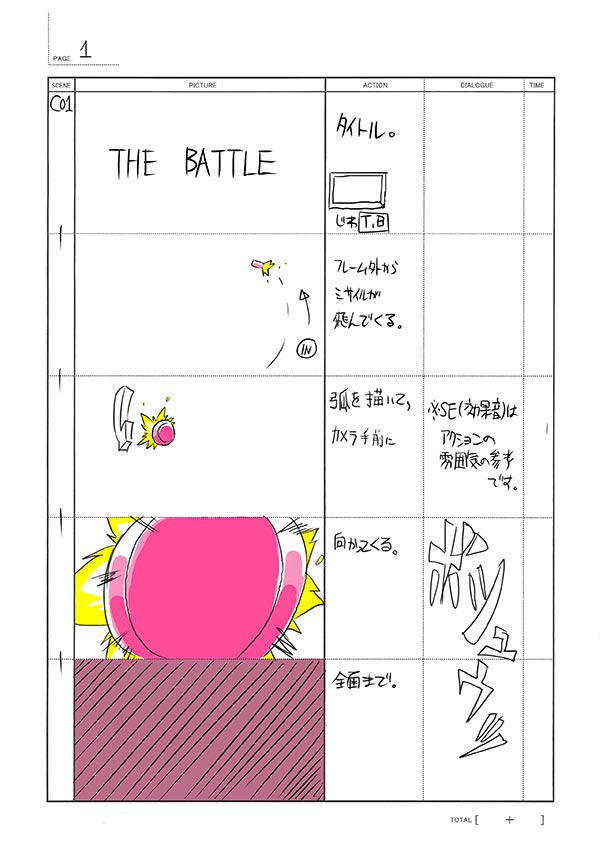 PAGE 1
SCENE PICTURE ACTION DIALOGUE TIME
C01
THE BATTLE
タイトル。
じわ T.B
フレーム外から
ミサイルが
飛んでくる。
IN
弧を描いて,
カメラ手前に
※SE(効果音)は
アクションの
雰囲気の参考
です。
向かってくる。
ボシュ
全面まで。
ウッ
TOTAL [ + ]